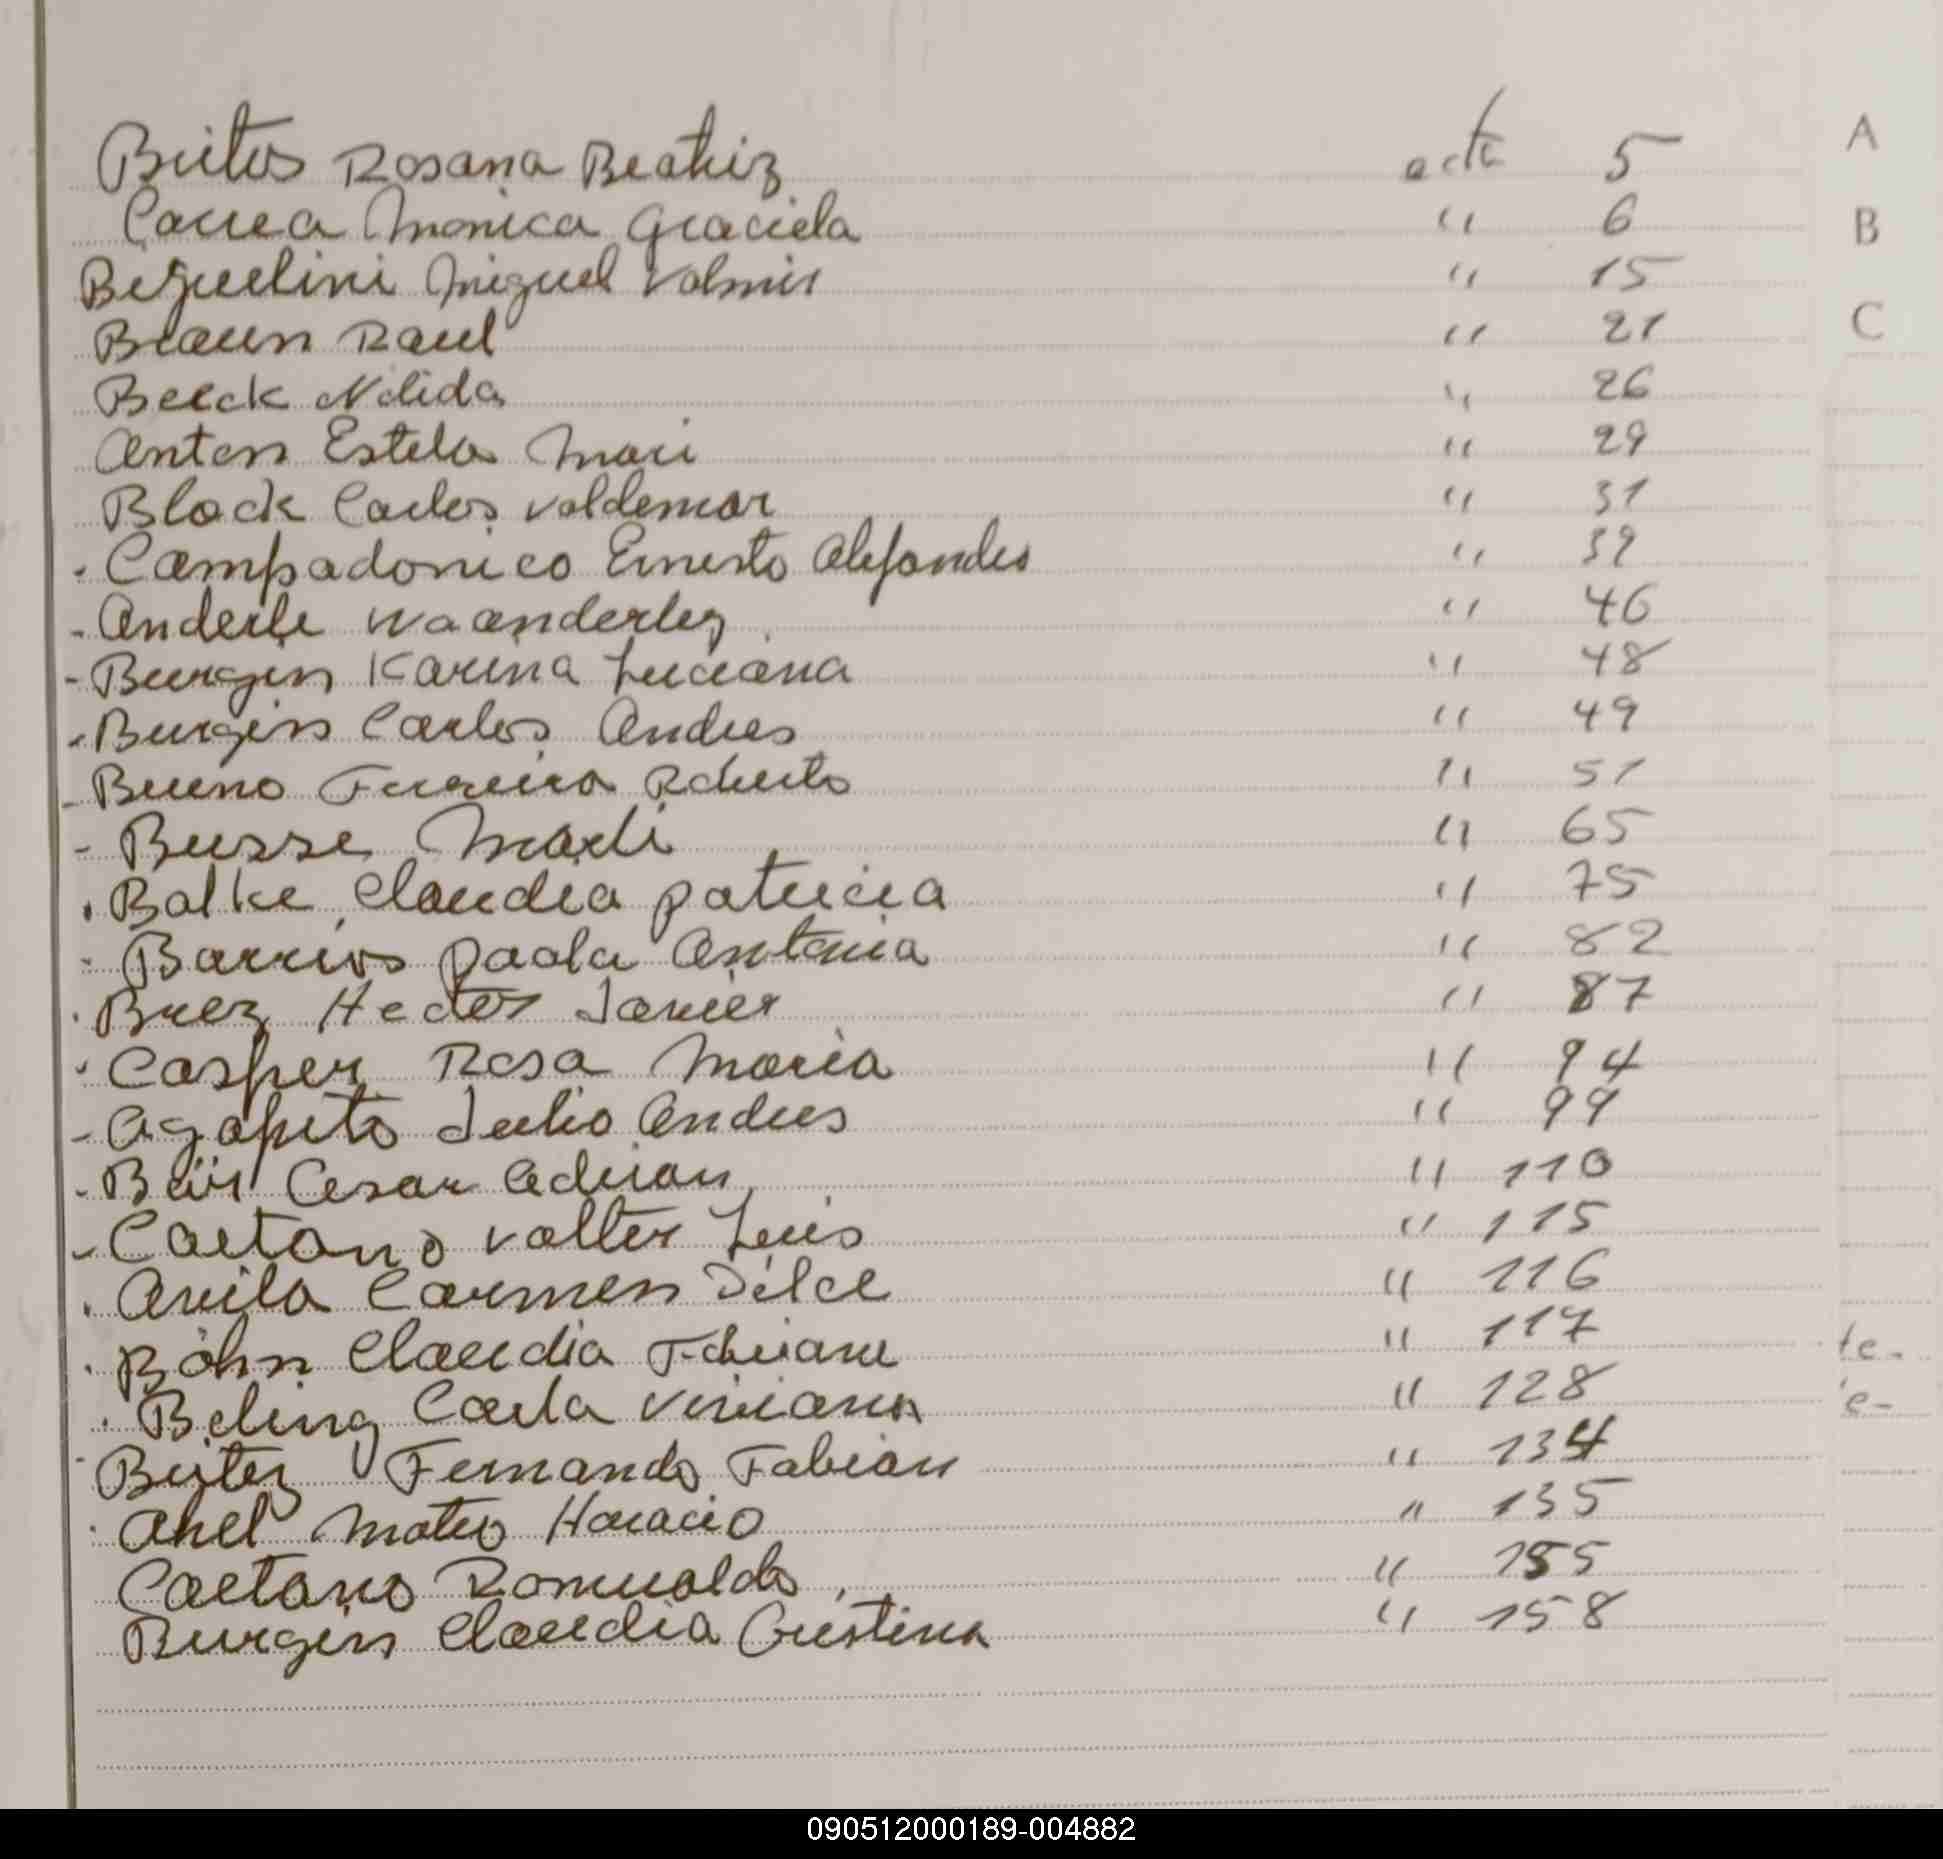 A
B
C
Britos Rosana Beatriz acta 5
Correa Monica Graciela " 6
Bequelini Miguel Valmir " 15
Braun Raul " 21
Beeck Nelida " 26
Anton Estela Mari " 29
Block Carlos Valdemar " 31
- Campadonico Ernesto Alejandro " 39
- Anderle Waanderley " 46
- Burgin Karina Luciana " 48
- Burgin Carlos Andres " 49
- Bueno Ferreira Roberto " 51
- Busse Marli " 65
- Balke Claudia Patricia " 75
- Barrios Paola Antonia " 82
- Baez Hector Javier " 87
- Casper Rosa Maria " 94
- Agapito Julio Andres " 99
- Bäir Cesar Adrian " 110
- Caetano Valter Luis " 115
- Avila Carmen Dilce " 116
- Böhn Claudia Fabiane " 117
- Beling Carla Viviana " 128
- Fernando Fabian " 134
- Mateo Horacio " 135
Caetano Romualdo " 155
Burgin Claudia Cristina " 158
te-
e-
090512000189-004882